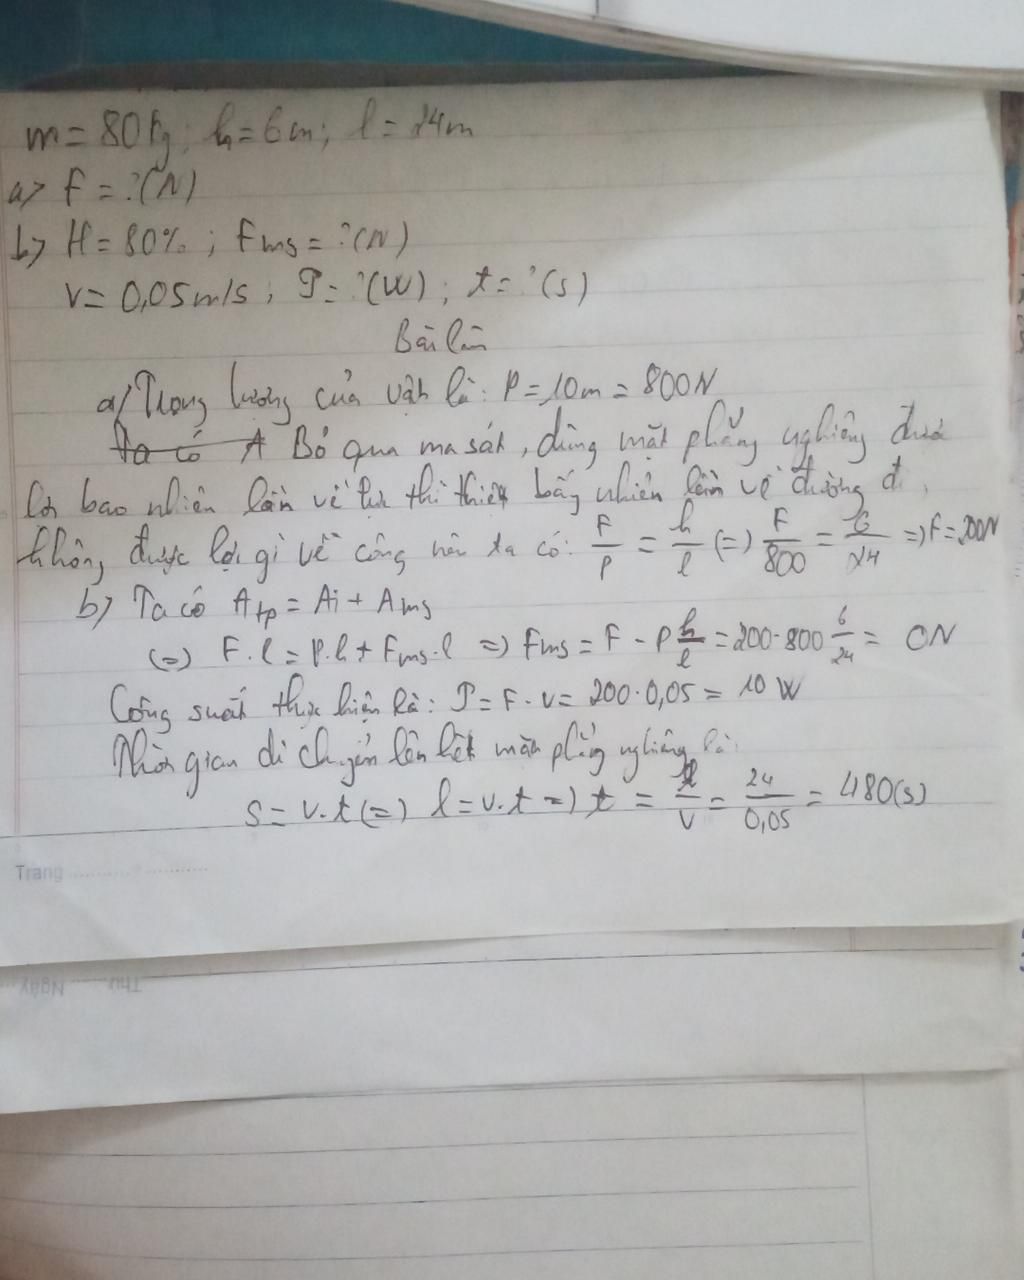 m = 80kg; h = 6m; l = 24m
a> F = ?(N)
b> H = 80%; Fms = ?(N)
v = 0,05m/s; P = ?(W); t = ?(s)
Bài làm
a/ Trọng lượng của vật là: P = 10m = 800N
Ta có A Bỏ qua ma sát, dùng mặt phẳng nghiêng được
lợi bao nhiêu lần về lực thì thiệt bấy nhiêu lần về đường đi,
không được lợi gì về công nên ta có: F/P = h/l (=) F/800 = 6/24 =) F = 200N
b) Ta có Atp = Ai + Ams
(=) F.l = P.h + Fms.l =) Fms = F - P h/l = 200-800 6/24 = 0N
Công suất thực hiện là: P = F.v = 200.0,05 = 10 W
Thời gian di chuyển lên hết mặt phẳng nghiêng là:
S = v.t (=) l = v.t =) t = l/v = 24/0,05 = 480(s)
Trang
Thứ Ngày